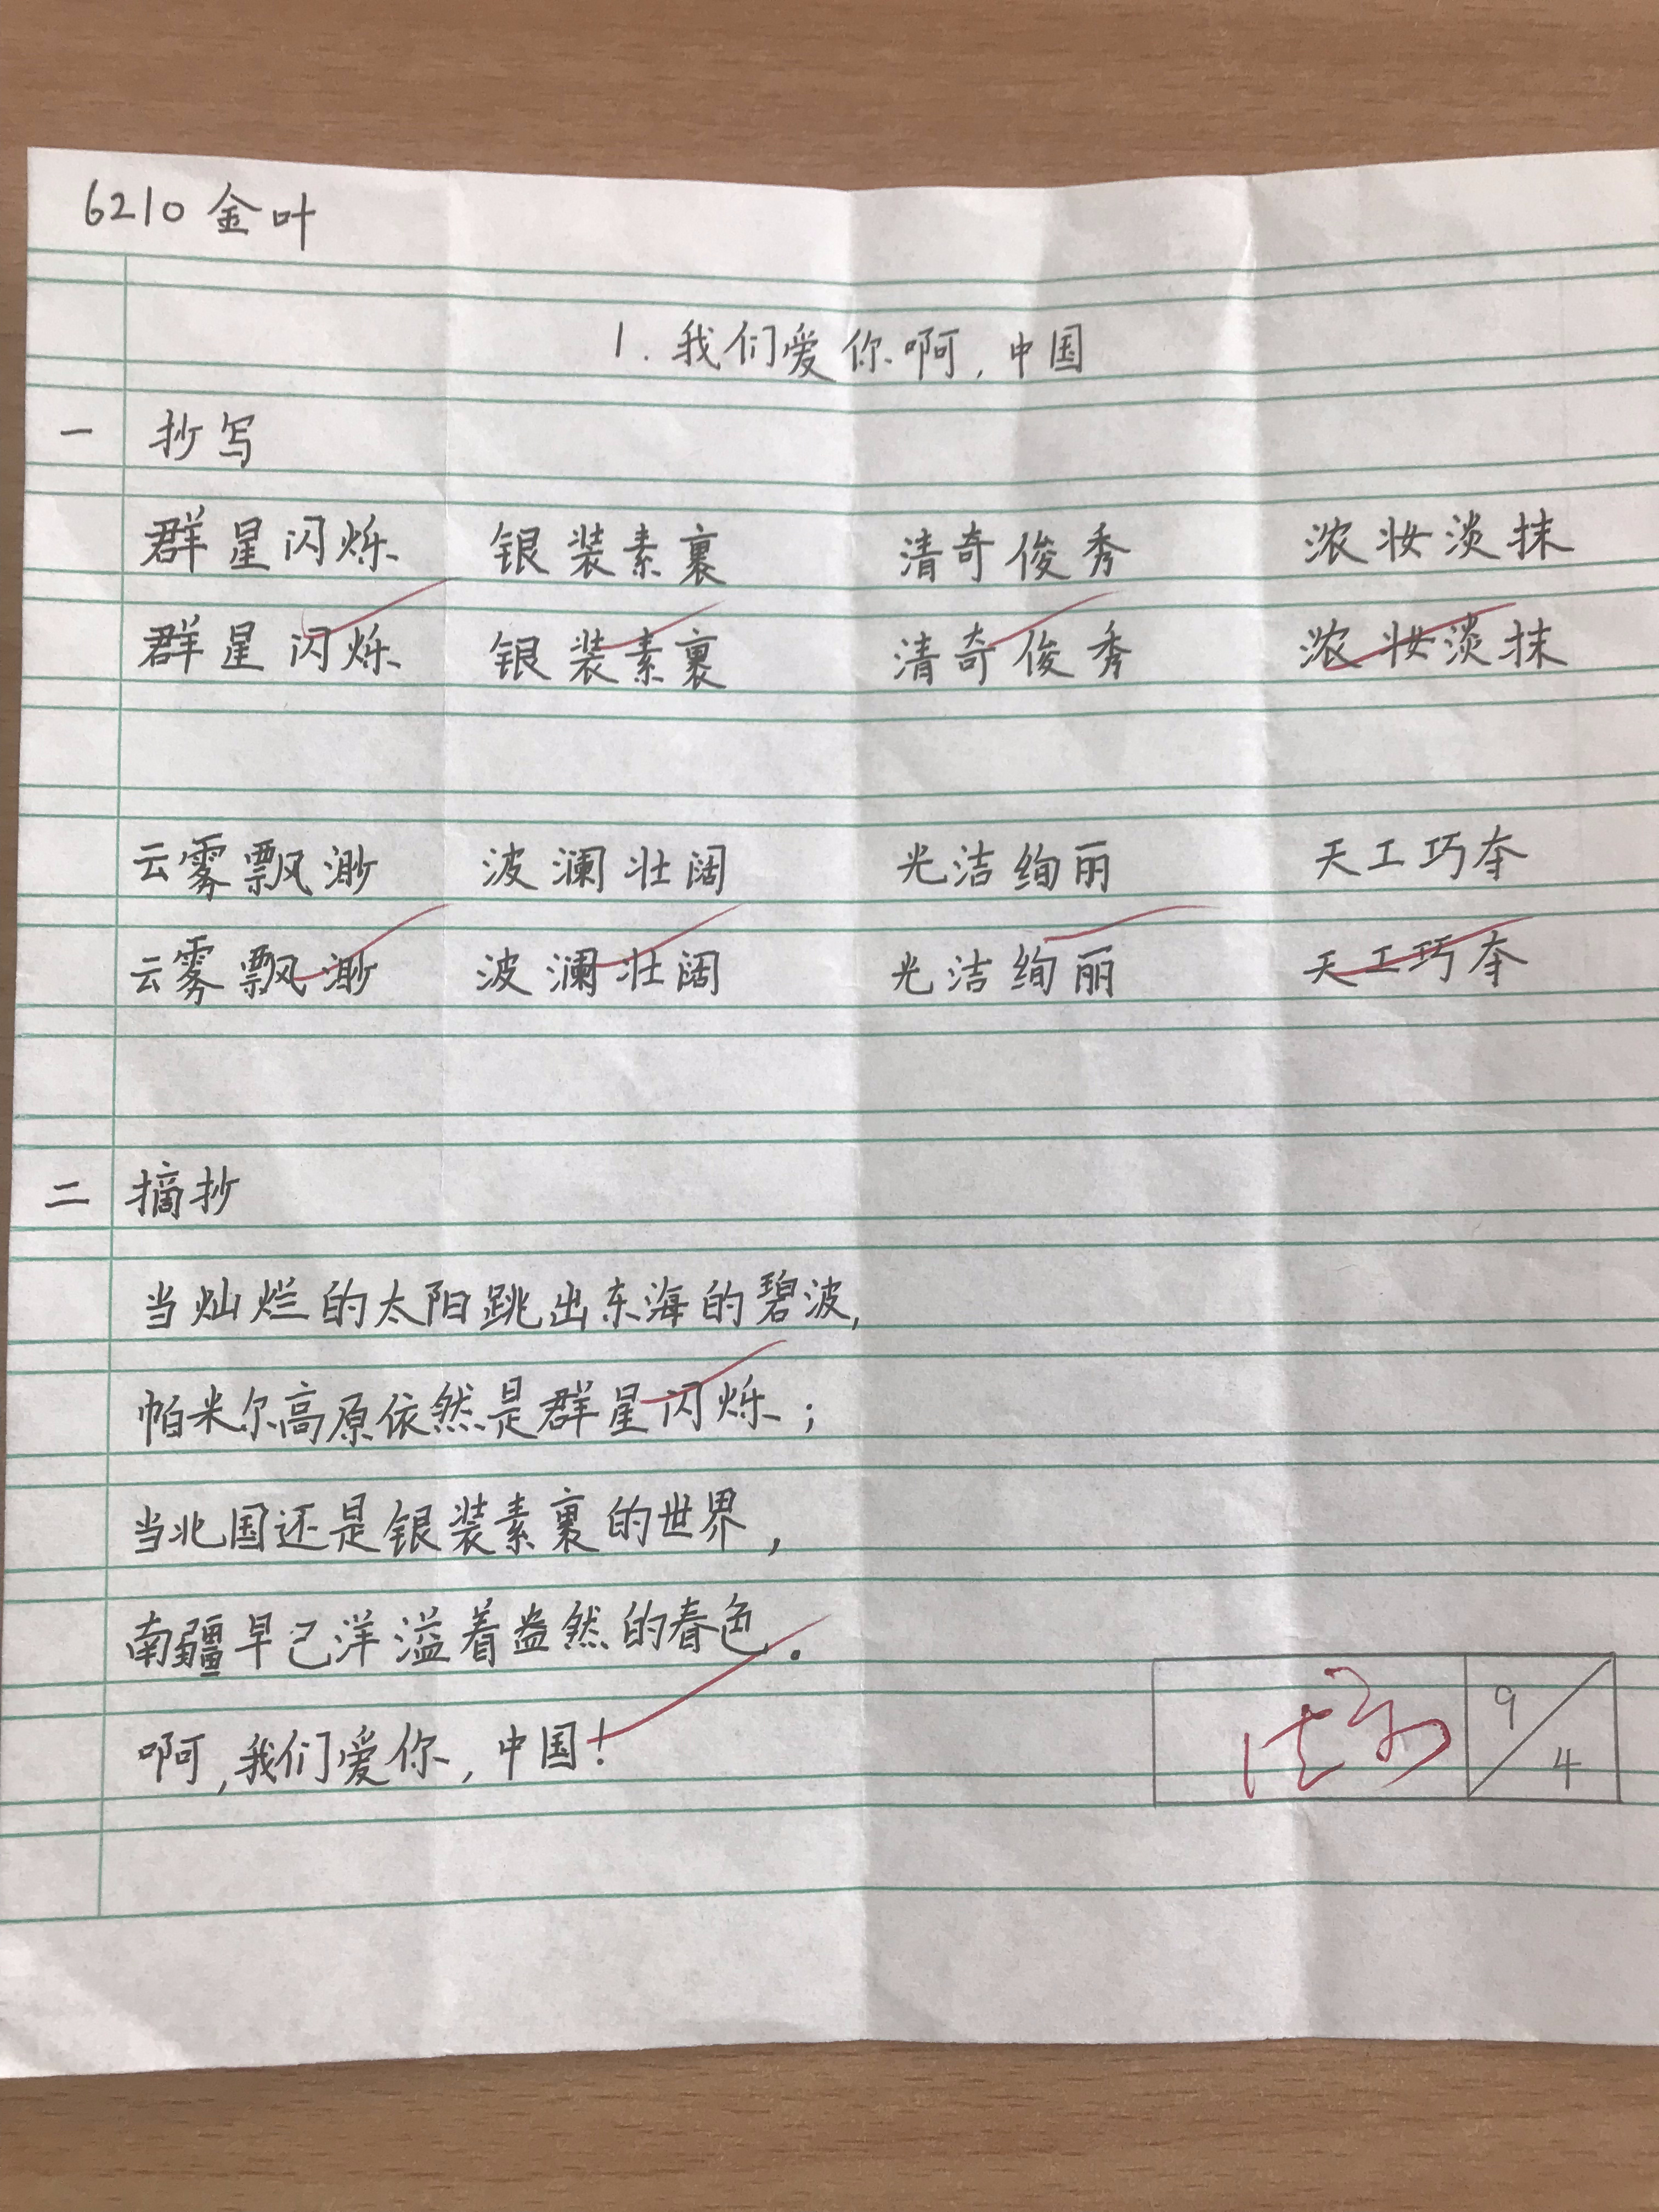 6210 金叶
1. 我们爱你啊，中国
一 抄写
群星闪烁 银装素裹 清奇俊秀 浓妆淡抹
群星闪烁 银装素裹 清奇俊秀 浓妆淡抹
云雾飘渺 波澜壮阔 光洁绚丽 天工巧夺
云雾飘渺 波澜壮阔 光洁绚丽 天工巧夺
二 摘抄
当灿烂的太阳跳出东海的碧波,
帕米尔高原依然是群星闪烁；
当北国还是银装素裹的世界，
南疆早已洋溢着盎然的春色.
啊,我们爱你，中国！
9/4